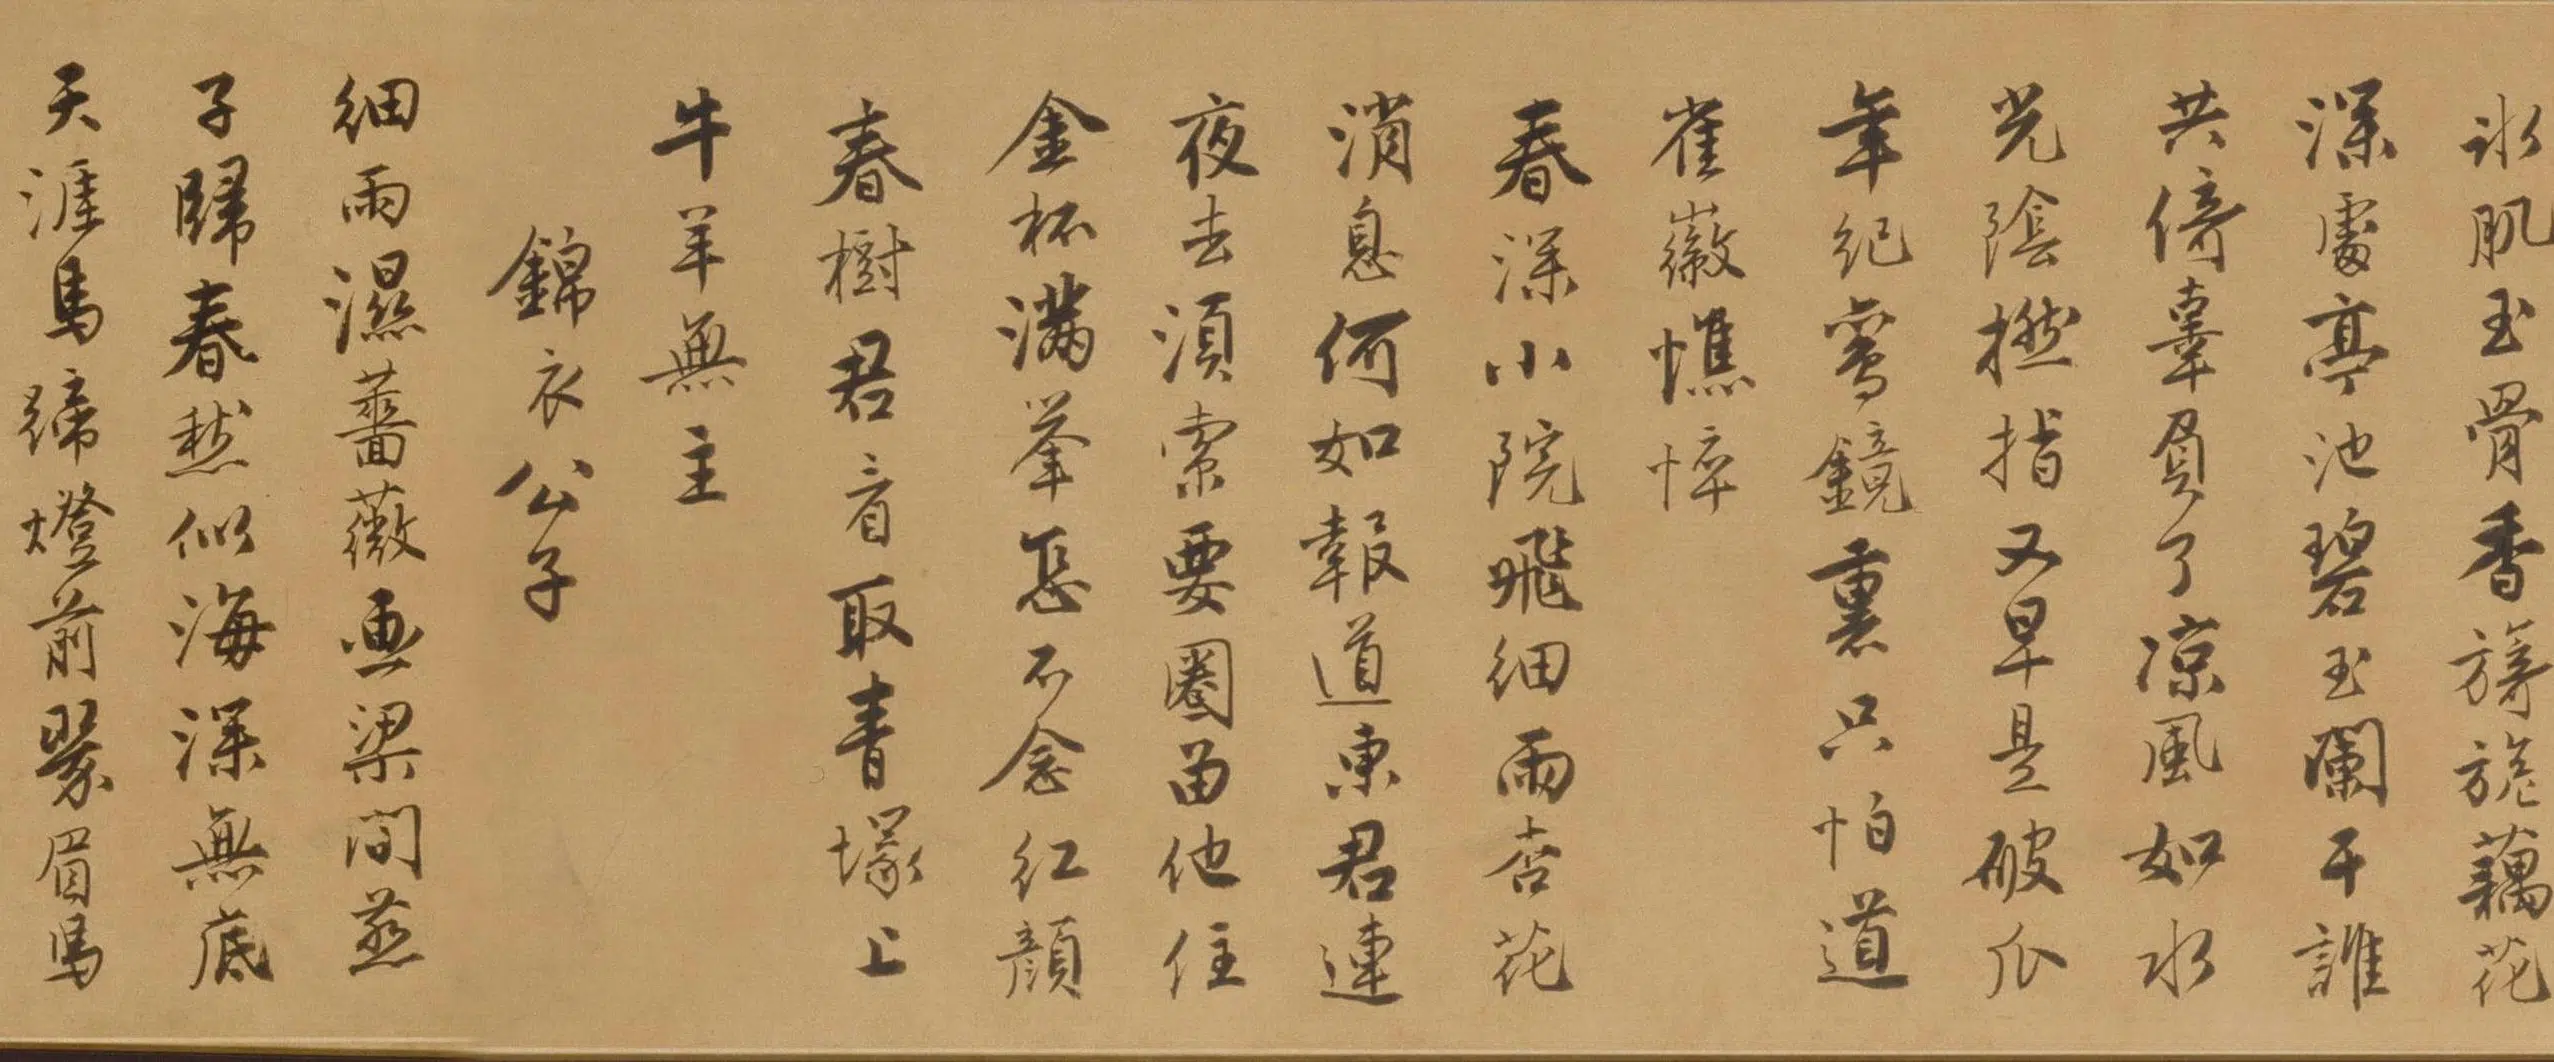 冰肌玉骨香旖旎藕花
深處亭池碧玉闌干誰
共倚辜負了涼風如水
光陰撚指又早是破瓜
年紀鸞鏡裏只怕道
崔徽憔悴
春深小院飛細雨杏花
消息何如報道東君連
夜去須索要圈留他住
金杯滿举怎不念紅顔
春樹君看取青塚上
牛羊無主
錦衣公子
細雨濕薔薇画梁間燕
子歸春愁似海深無底
天涯馬蹄燈前翠眉馬